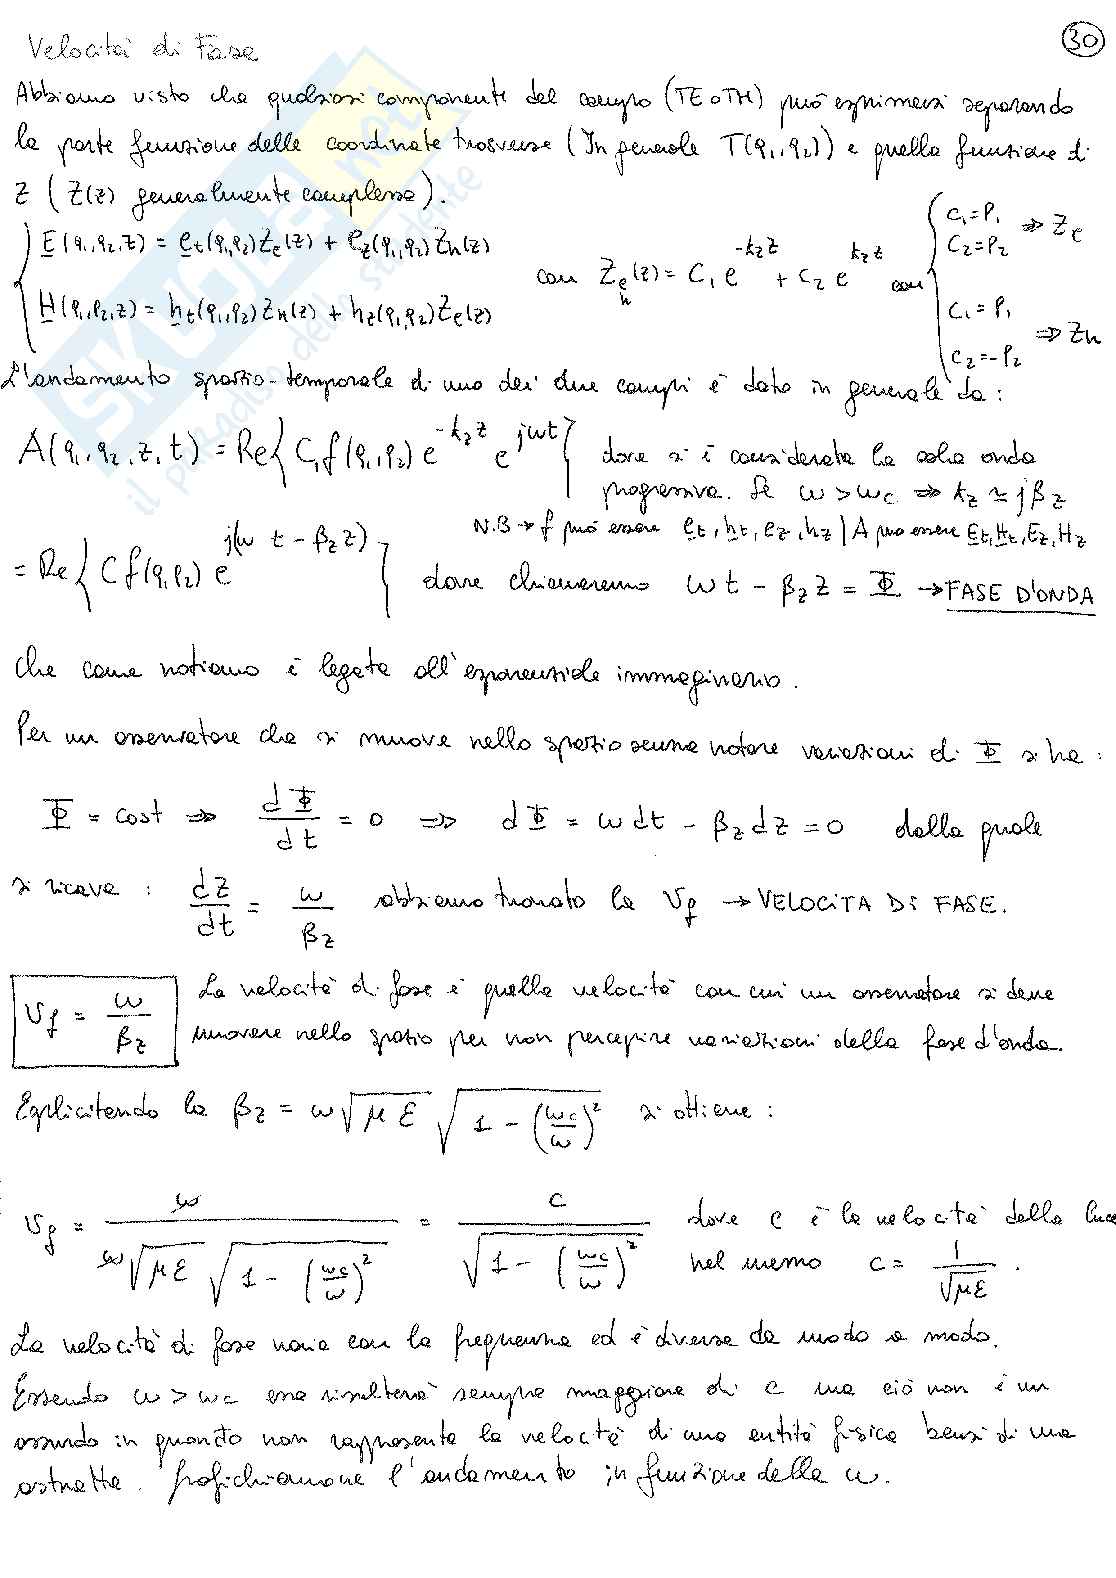 30
Velocità di Fase
Abbiamo visto che qualsiasi componente del campo (TE o TM) può esprimersi separando
la parte funzione delle coordinate trasverse (In generale T(q₁,q₂)) e quella funzione di
z (Z(z) generalmente complessa).
E(q₁,q₂,z) = e_t(q₁,q₂)Z_e(z) + e_z(q₁,q₂)Z_h(z)
H(q₁,q₂,z) = h_t(q₁,q₂)Z_h(z) + h_z(q₁,q₂)Z_e(z)
con Z_{e,h}(z) = C₁ e^{-k_z z} + C₂ e^{k_z z} con
C₁ = P₁
C₂ = P₂ ⇒ Z_e
C₁ = P₁
C₂ = -P₂ ⇒ Z_h
L'andamento spazio-temporale di uno dei due campi è dato in generale da:
A(q₁,q₂,z,t) = Re{C₁f(q₁,q₂) e^{-k_z z} e^{jωt}} dove si è considerata la sola onda
progressiva. Se ω > ω_c ⇒ k_z ≃ jβ_z
N.B → f può essere e_t, h_t, e_z, h_z | A può essere E_t, H_t, E_z, H_z
= Re{C f(q₁,q₂) e^{j(ωt - β_z z)}} dove chiameremo ωt - β_z z = Φ → FASE D'ONDA
che come notiamo è legata all'esponenziale immaginario.
Per un osservatore che si muove nello spazio senza notare variazioni di Φ si ha:
Φ = cost ⇒ dΦ/dt = 0 ⇒ dΦ = ωdt - β_z dz = 0 dalla quale
si ricava: dz/dt = ω/β_z abbiamo trovato la v_f → VELOCITÀ DI FASE.
v_f = ω/β_z La velocità di fase è quella velocità con cui un osservatore si deve
muovere nello spazio per non percepire variazioni della fase d'onda.
Esplicitando la β_z = ω√(με) √(1 - (ω_c/ω)²) si ottiene:
v_f = ω / (ω√(με) √(1 - (ω_c/ω)²)) = c / √(1 - (ω_c/ω)²) dove c è la velocità della luce
nel mezzo c = 1/√(με).
La velocità di fase varia con la frequenza ed è diversa da modo a modo.
Essendo ω > ω_c essa risulterà sempre maggiore di c ma ciò non è un
assurdo in quanto non rappresenta la velocità di una entità fisica bensì di una
astratta. Grafichiamone l'andamento in funzione della ω.
SKUOLA.net
il paradiso dello studente